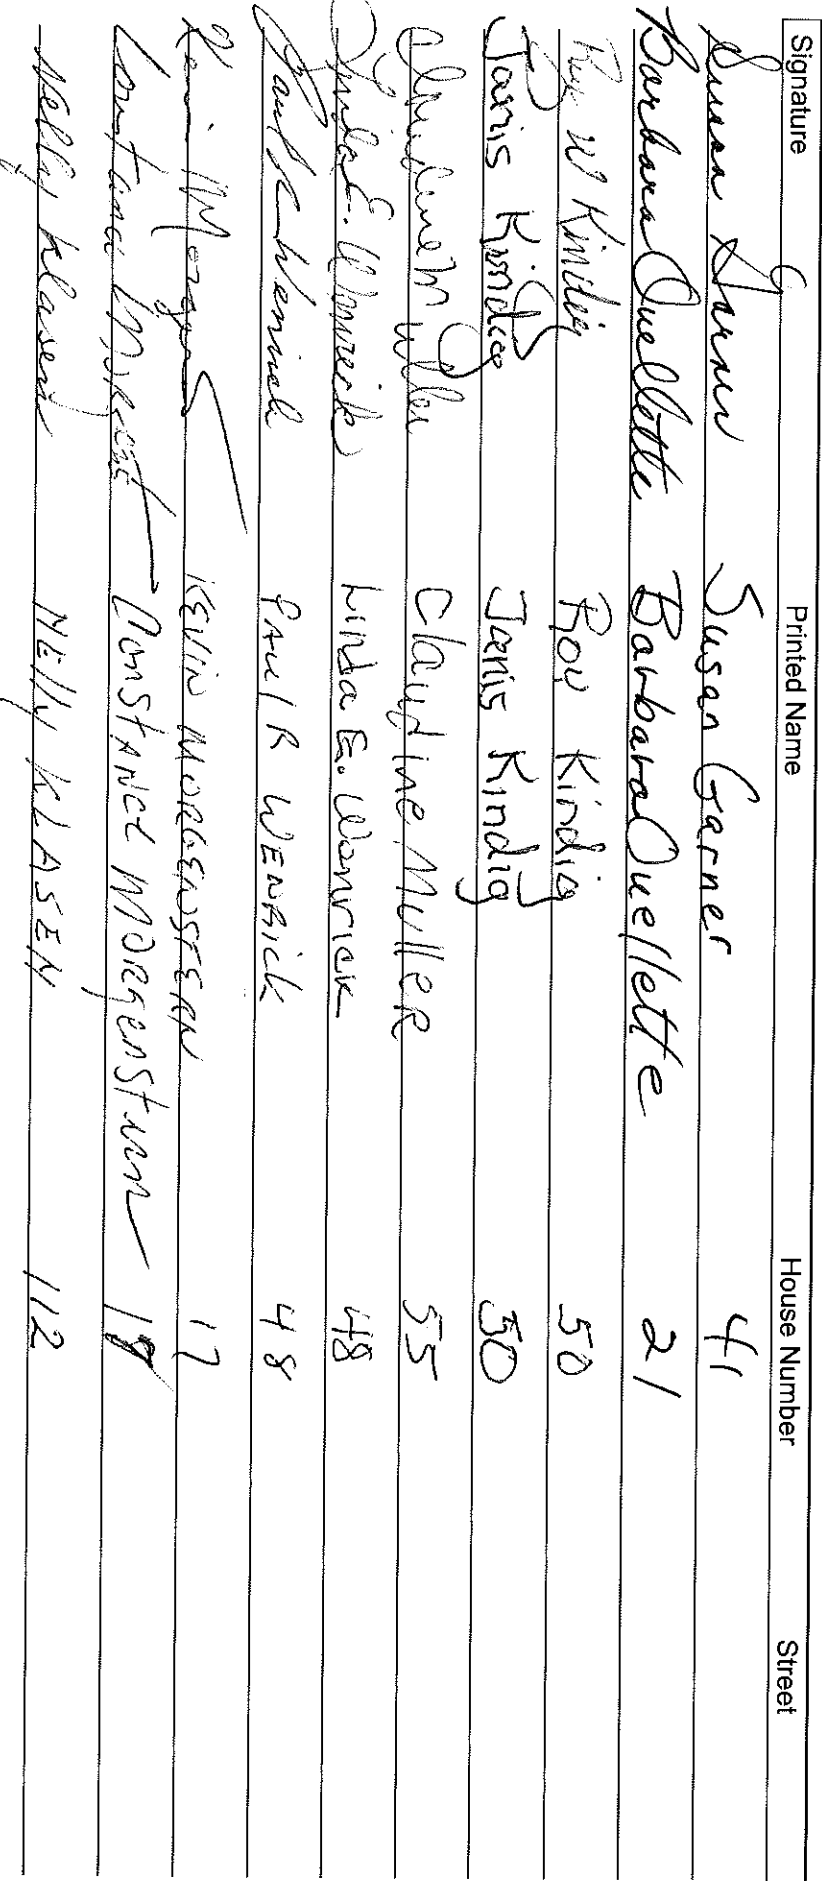 Signature Printed Name House Number Street
Susan Garner Susan Garner 41
Barbara Ouellette Barbara Ouellette 21
Roy W Kindig Roy Kindig 50
Janis Kindig Janis Kindig 50
Claudine Muller Claudine Muller 55
Linda E. Wenrick Linda E. Wenrick 48
Paul R Wenrick PAul R WENRick 48
Kevin KEVIN MORGENSTERN 17
Constance ConstANCE MORgenstern
Nelly Klasen NEllY KLASEN 112